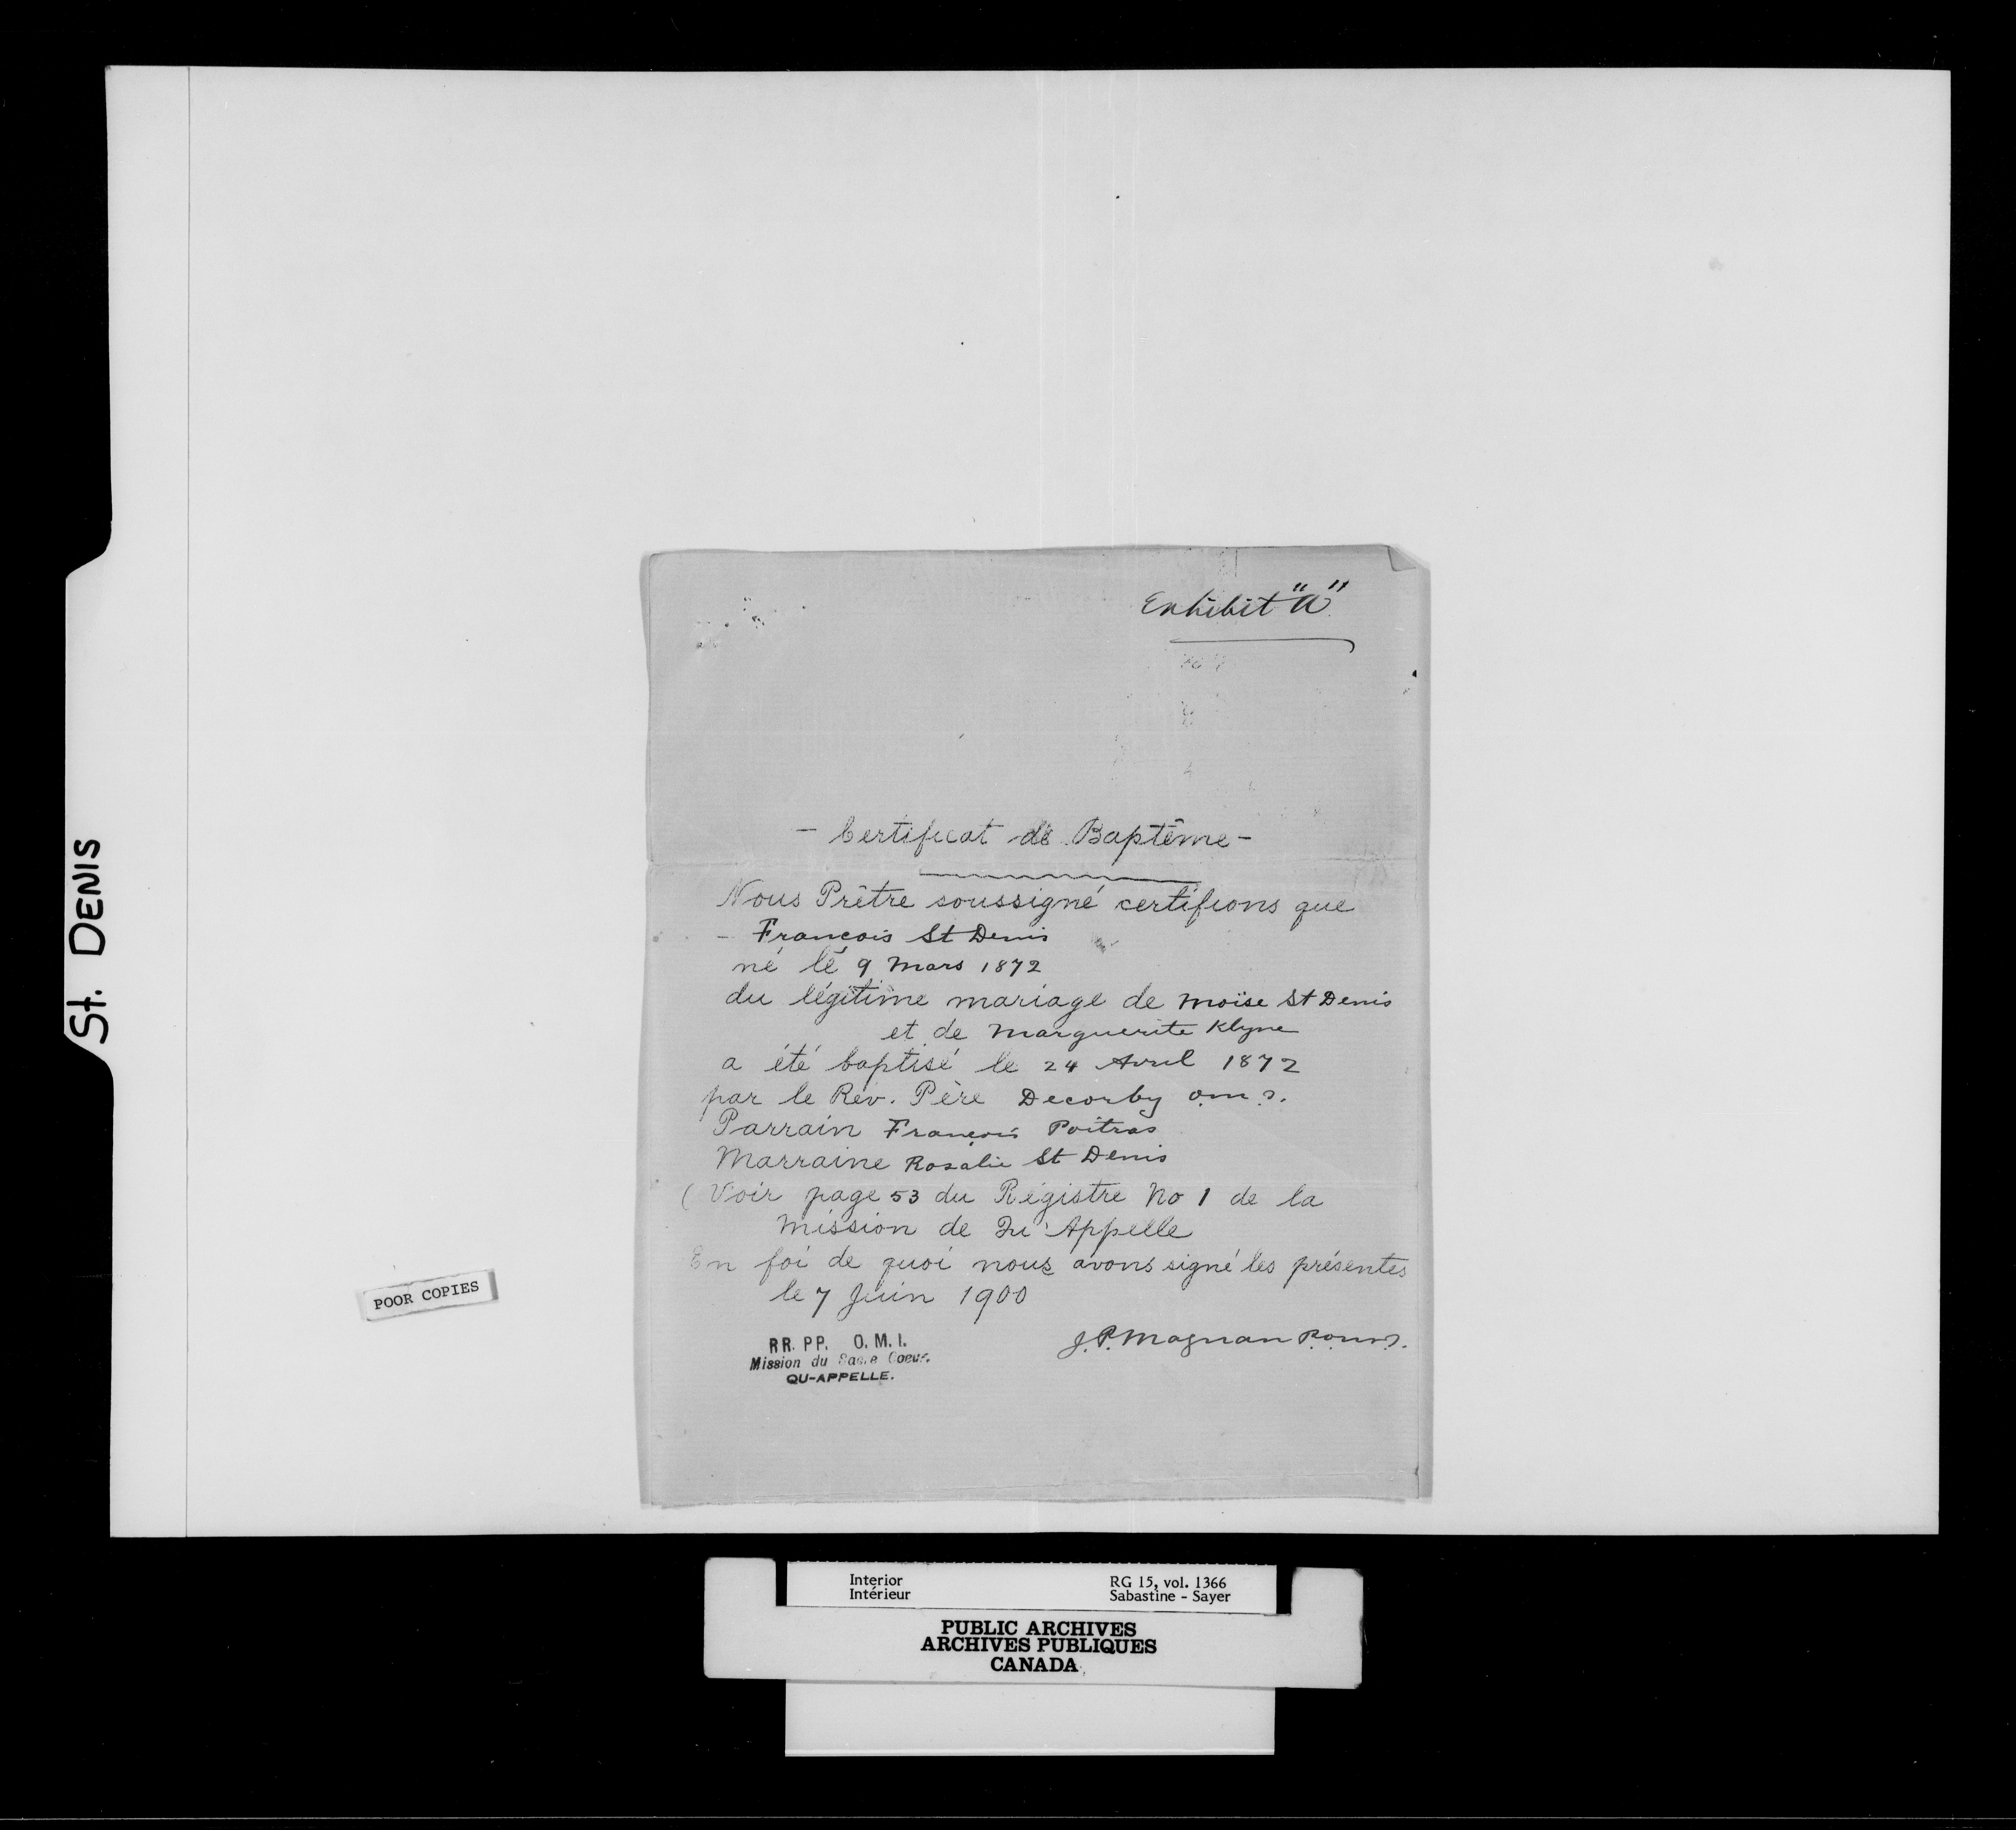 St. DENIS
Exhibit "A"
- Certificat de Baptême -
Nous Prêtre soussigné certifions que
- François St Denis
né le 9 Mars 1872
du légitime mariage de Moïse St Denis
et de Marguerite Klyne
a été baptisé le 24 Avril 1872
par le Rév. Père Decorby o.m.i.
Parrain François Poitras
Marraine Rosalie St Denis
(Voir page 53 du Régistre No 1 de la
Mission de Qu'Appelle
En foi de quoi nous avons signé les présentes
le 7 Juin 1900
J.P. Magnan P.o.m.i.
RR. PP. O. M. I.
Mission du Sacre Coeur.
QU-APPELLE.
POOR COPIES
Interior RG 15, vol. 1366
Intérieur Sabastine - Sayer
PUBLIC ARCHIVES
ARCHIVES PUBLIQUES
CANADA